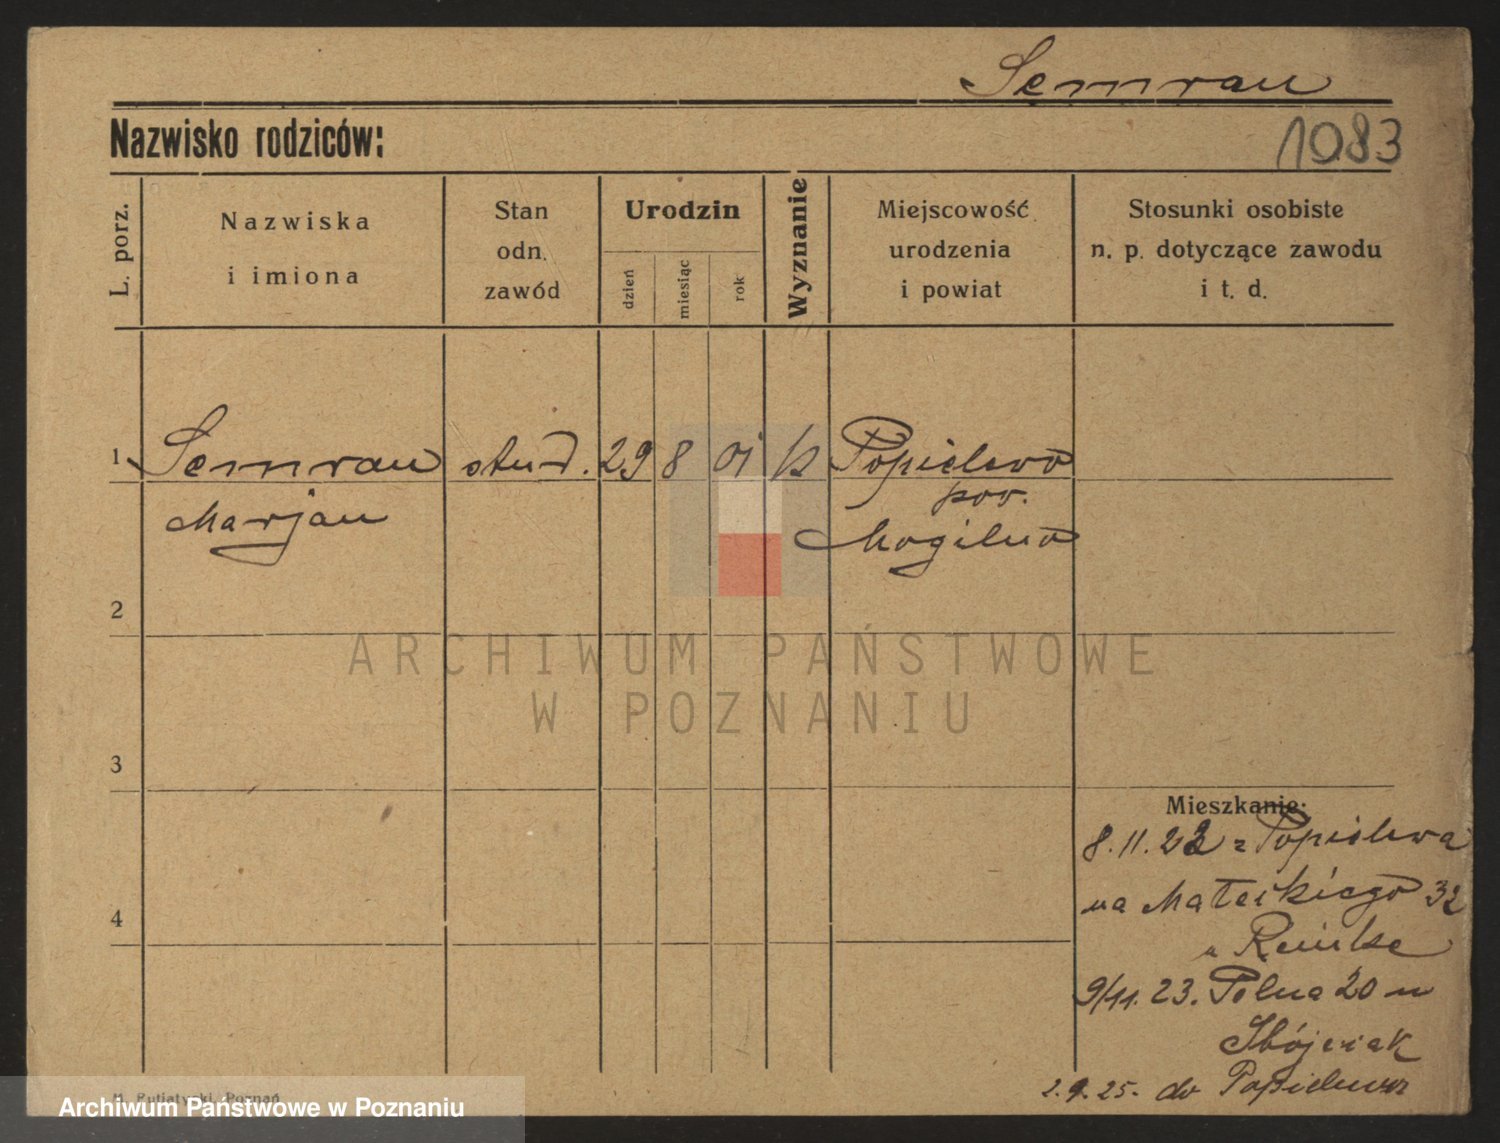 Semrau
Nazwisko rodziców:
1083
L. porz.
Nazwiska
i imiona
Stan
odn.
zawód
Urodzin
dzień
miesiąc
rok
Wyznanie
Miejscowość
urodzenia
i powiat
Stosunki osobiste
n. p. dotyczące zawodu
i t. d.
1 Semrau stud. 29 8 01 k Popielewo
Marjan
pow.
Mogilno
2
ARCHIWUM PAŃSTWOWE
W POZNANIU
3
Mieszkanie:
8.11.22 z Popielewa
na Małeckiego 32
u
9/11.23. Polna 20 u
4
2.9.25. do Popielewa
Poznań
Archiwum Państwowe w Poznaniu